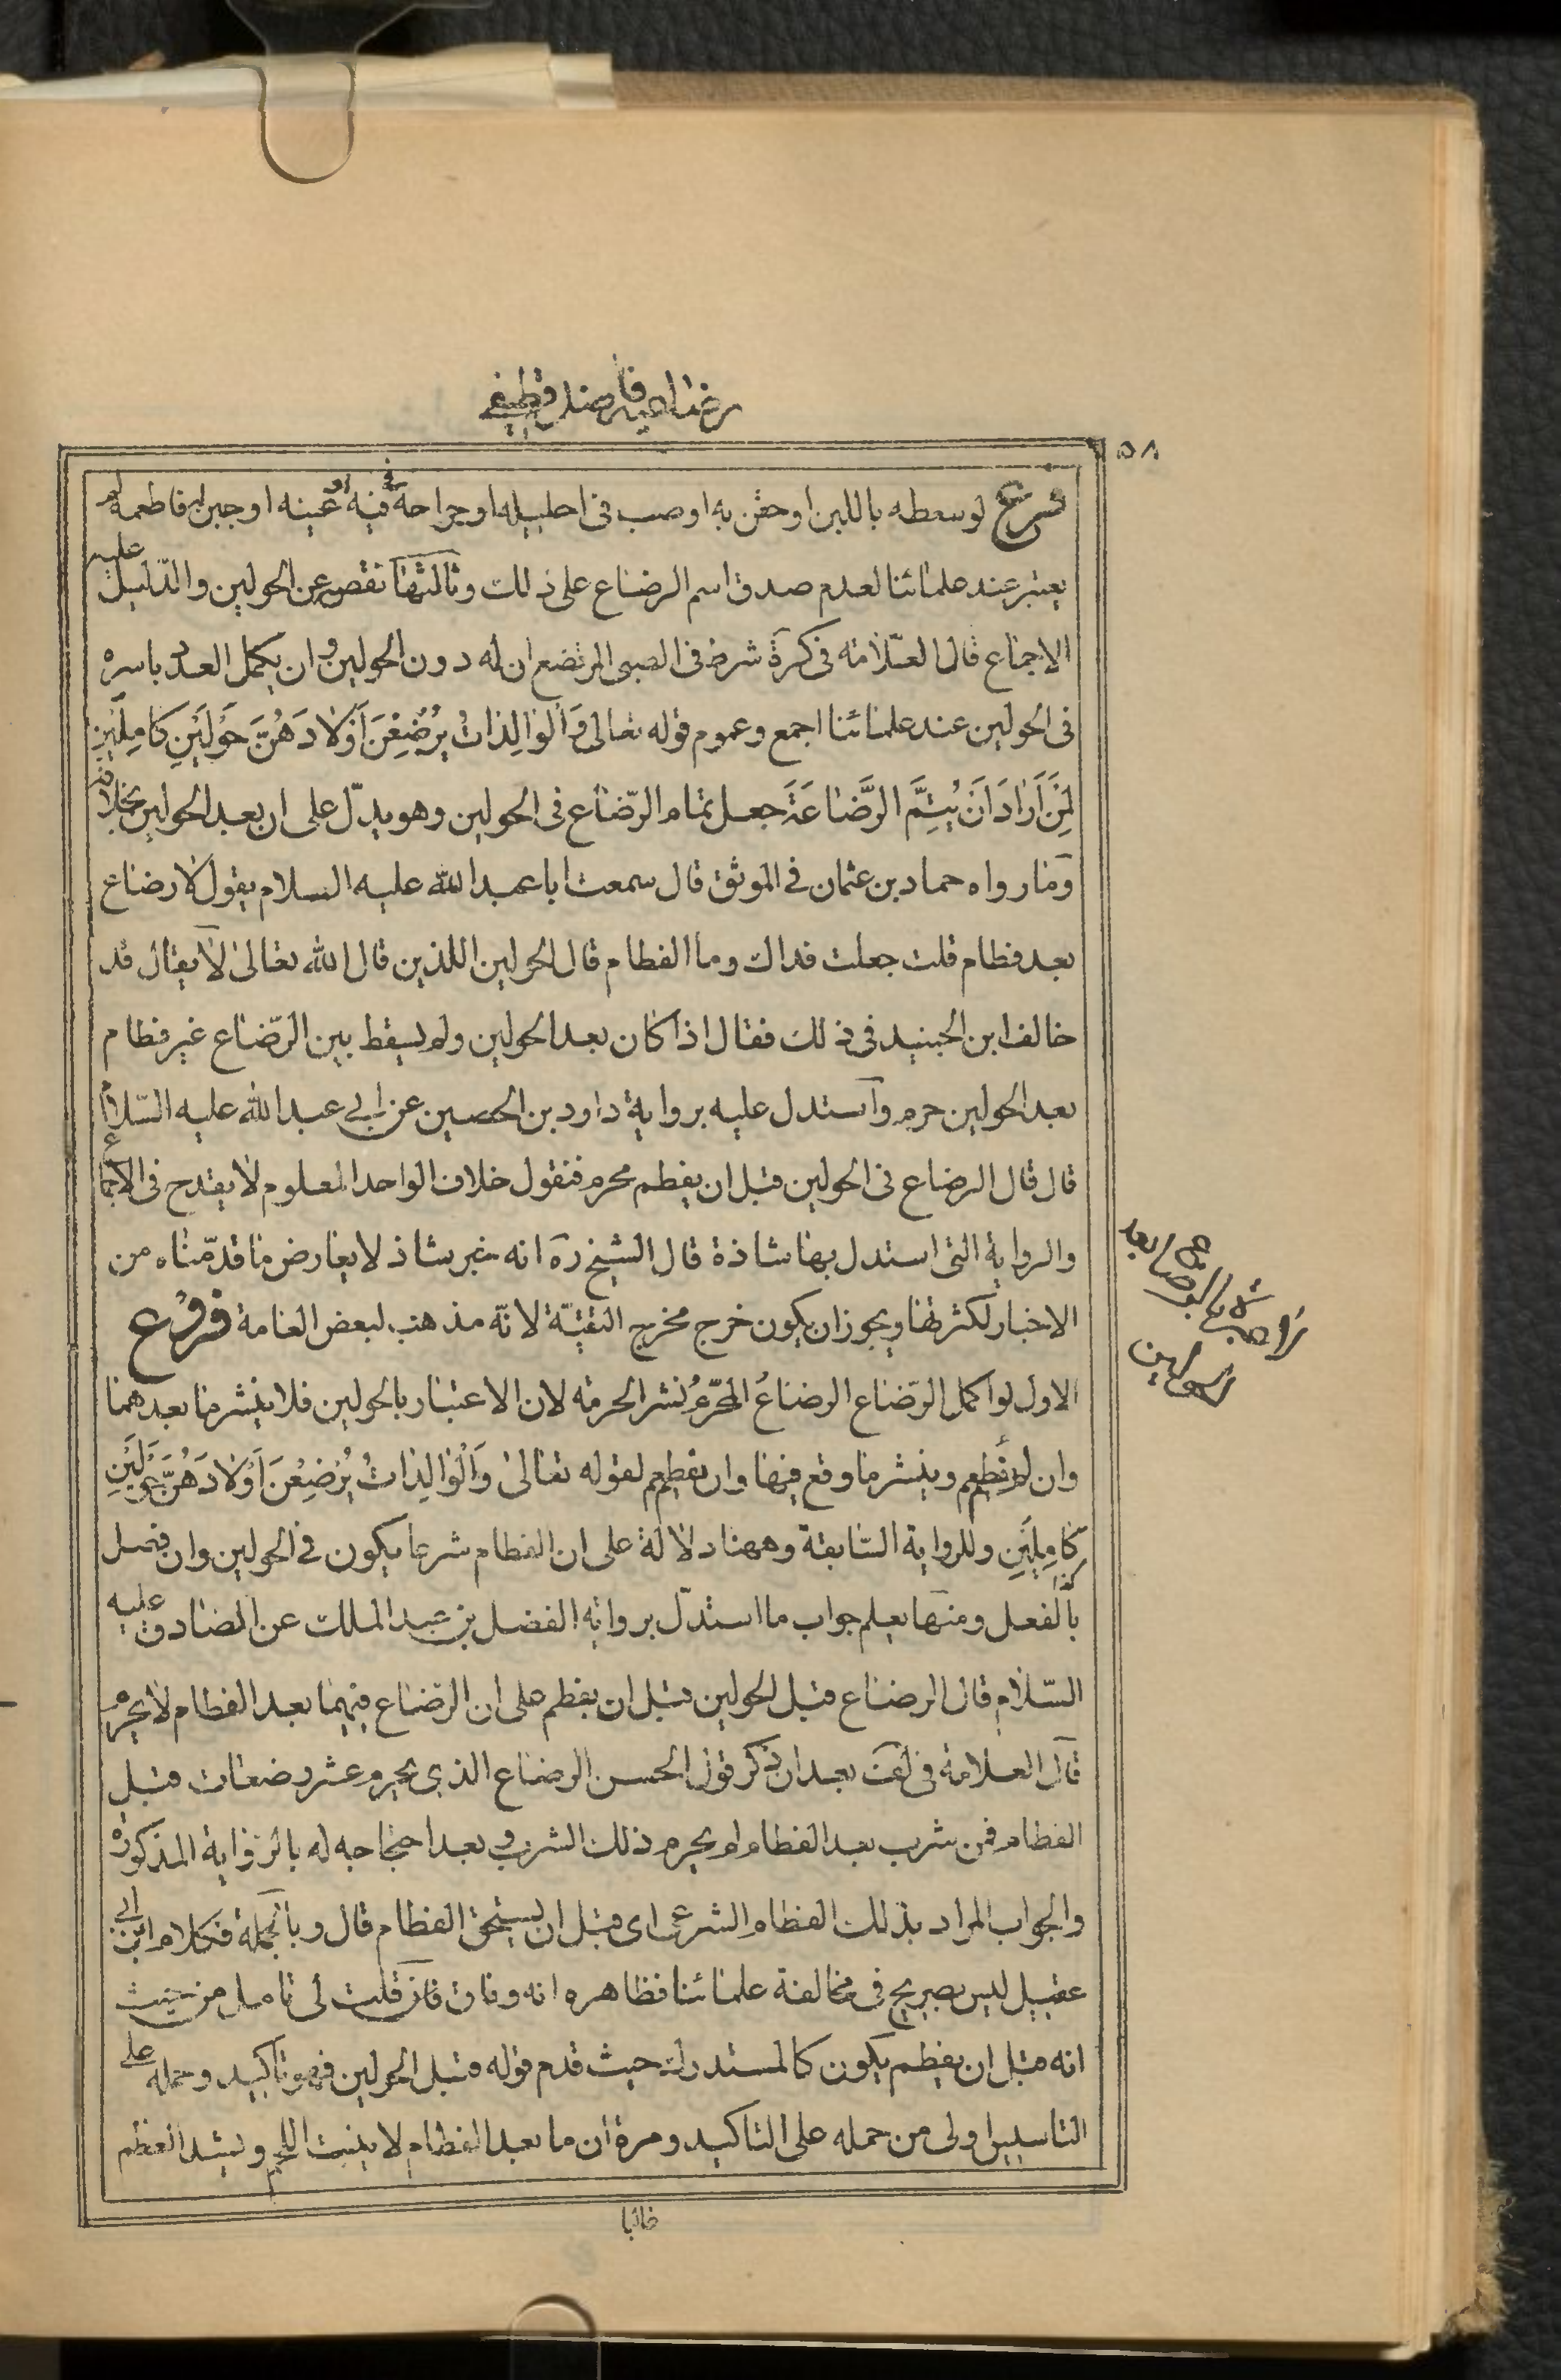 رضاعيه فاضل قطيفى
٥٨
فرع لو سعطه باللبن او حقن به او صب فى احليله او جراحة فى فيه او عينه او جبن له فاطعمه لم
يعتبر عند علمائنا لعدم صدق اسم الرضاع على ذلك وثالثها نقصه عن الحولين والدّليل عليه
الاجماع قال العلّامه فى كرة شرط فى الصبى المرتضع ان له دون الحولين وان يكمل العدد باسره
فى الحولين عند علمائنا اجمع وعموم قوله تعالى وَالْوالِداتُ يُرْضِعْنَ أَوْلادَهُنَّ حَوْلَيْنِ كامِلَيْنِ
لِمَنْ اَرادَ اَنْ يُتِمَّ الرَّضاعَةَ جعل تمام الرّضاع فى الحولين وهو يدلّ على ان بعد الحولين بخلافه
وما رواه حماد بن عثمان فى الموثق قال سمعت ابا عبد الله عليه السلام يقول لا رضاع
بعد فطام قلت جعلت فداك وما الفطام قال الحولين اللذين قال الله تعالى لا يقال قد
خالف ابن الجنيد فى ذلك فقال اذا كان بعد الحولين ولم يسقط بين الرّضاع غير فطام
بعد الحولين حرم واستدل عليه برواية داود بن الحصين عن ابى عبد الله عليه السّلام
قال قال الرضاع فى الحولين قبل ان يفطم محرم فنقول خلاف الواحد المعلوم لا يقدح فى الاجماع
والرواية التى استدل بها شاذة قال الشيخ ره انه خبر شاذ لا يعارض ما قدّمناه من
الاخبار لكثرتها ويجوز ان يكون خرج مخرج التقيّة لانّه مذهب لبعض العامة فروع
الاول لو اكمل الرّضاع الرضاعُ المحرّمُ نشر الحرمه لان الاعتبار بالحولين فلا ينشر ما بعدهما
وان لم يفطم وينشر ما وقع فيها وان يفطم لقوله تعالى وَالْوالِداتُ يُرْضِعْنَ اَوْلادَهُنَّ حَوْلَيْنِ
كامِلَيْنِ وللرواية السّابقة وههنا دلالة على ان الفطام شرعا يكون فى الحولين وان فصل
بالفعل ومنها يعلم جواب ما استدلّ برواية الفضل بن عبد الملك عن الصادق عليه
السّلام قال الرضاع قبل الحولين قبل ان يفطم على ان الرّضاع فيهما بعد الفطام لا يحرم
قال العلامة فى لف بعد ان ذكر قول الحسن الرضاع الذى يحرم عشر رضعات قبل
الفطام فمن شرب بعد الفطام لم يحرم ذلك الشرب وبعد احتجاجه له بالرواية المذكورة
والجواب المراد بذلك الفطام الشرعى اى قبل ان يستحق الفطام قال وبالجملة فكلام ابن ابى
عقيل ليس بصريح فى مخالفة علمائنا فظاهره انه وفاق فان قلت لى تامل من حيث
انه قبل ان يفطم يكون كالمستدرك حيث قدم قوله قبل الحولين فهو تاكيد وحمله على
التاسيس اولى من حمله على التاكيد ومرة ان ما بعد الفطام لا ينبت اللحم ويشد العظم
غالبا
بعد
الحولين